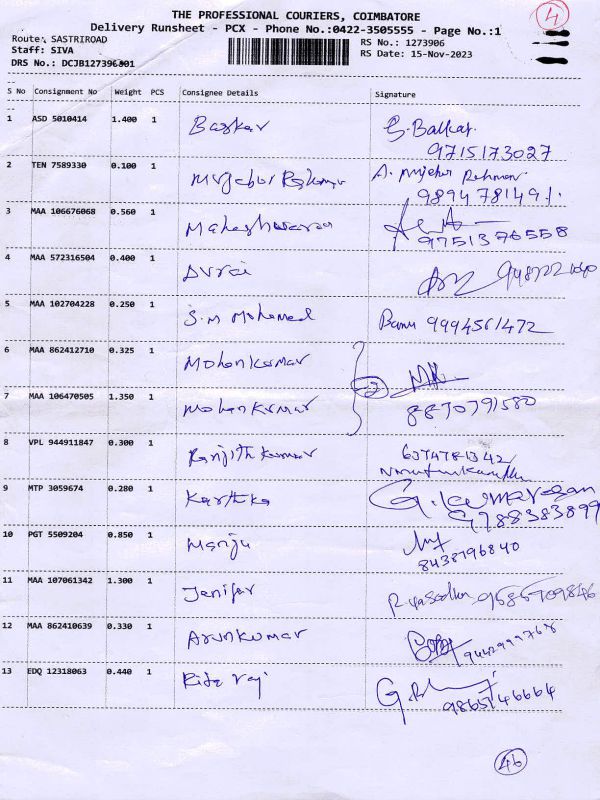 4
THE PROFESSIONAL COURIERS, COIMBATORE
Delivery Runsheet - PCX - Phone No.:0422-3505555 - Page No.:1
Route: SASTRIROAD
RS No.: 1273906
Staff: SIVA
RS Date: 15-Nov-2023
DRS No.: DCJB127396301
S No Consignment No Weight PCS Consignee Details Signature
1 ASD 5010414 1.400 1 Baskar S.Baskar
9715173027
2 TEN 7589330 0.100 1 Mujebur Rahman A. Mujebur Rehman
9894781491
3 MAA 106676068 0.560 1 Maheshwaran
9751376558
4 MAA 572316504 0.400 1 Durai
5 MAA 102704228 0.250 1 S.M Mohamed Banu 9994561472
6 MAA 862412710 0.325 1 Mohankumar
2
7 MAA 106470505 1.350 1 Mohankumar 8870791580
8 VPL 944911847 0.300 1 Ranjithkumar 6374781342
9 MTP 3059674 0.280 1 Karthika G.Kumaresan
9788383899
10 PGT 5509204 0.850 1 Manju
8438796840
11 MAA 107061342 1.300 1 Jenifar R.Yasodha
12 MAA 862410639 0.330 1 Arunkumar
9442999768
13 EDQ 12318063 0.440 1 Rita raj
9865746664
46